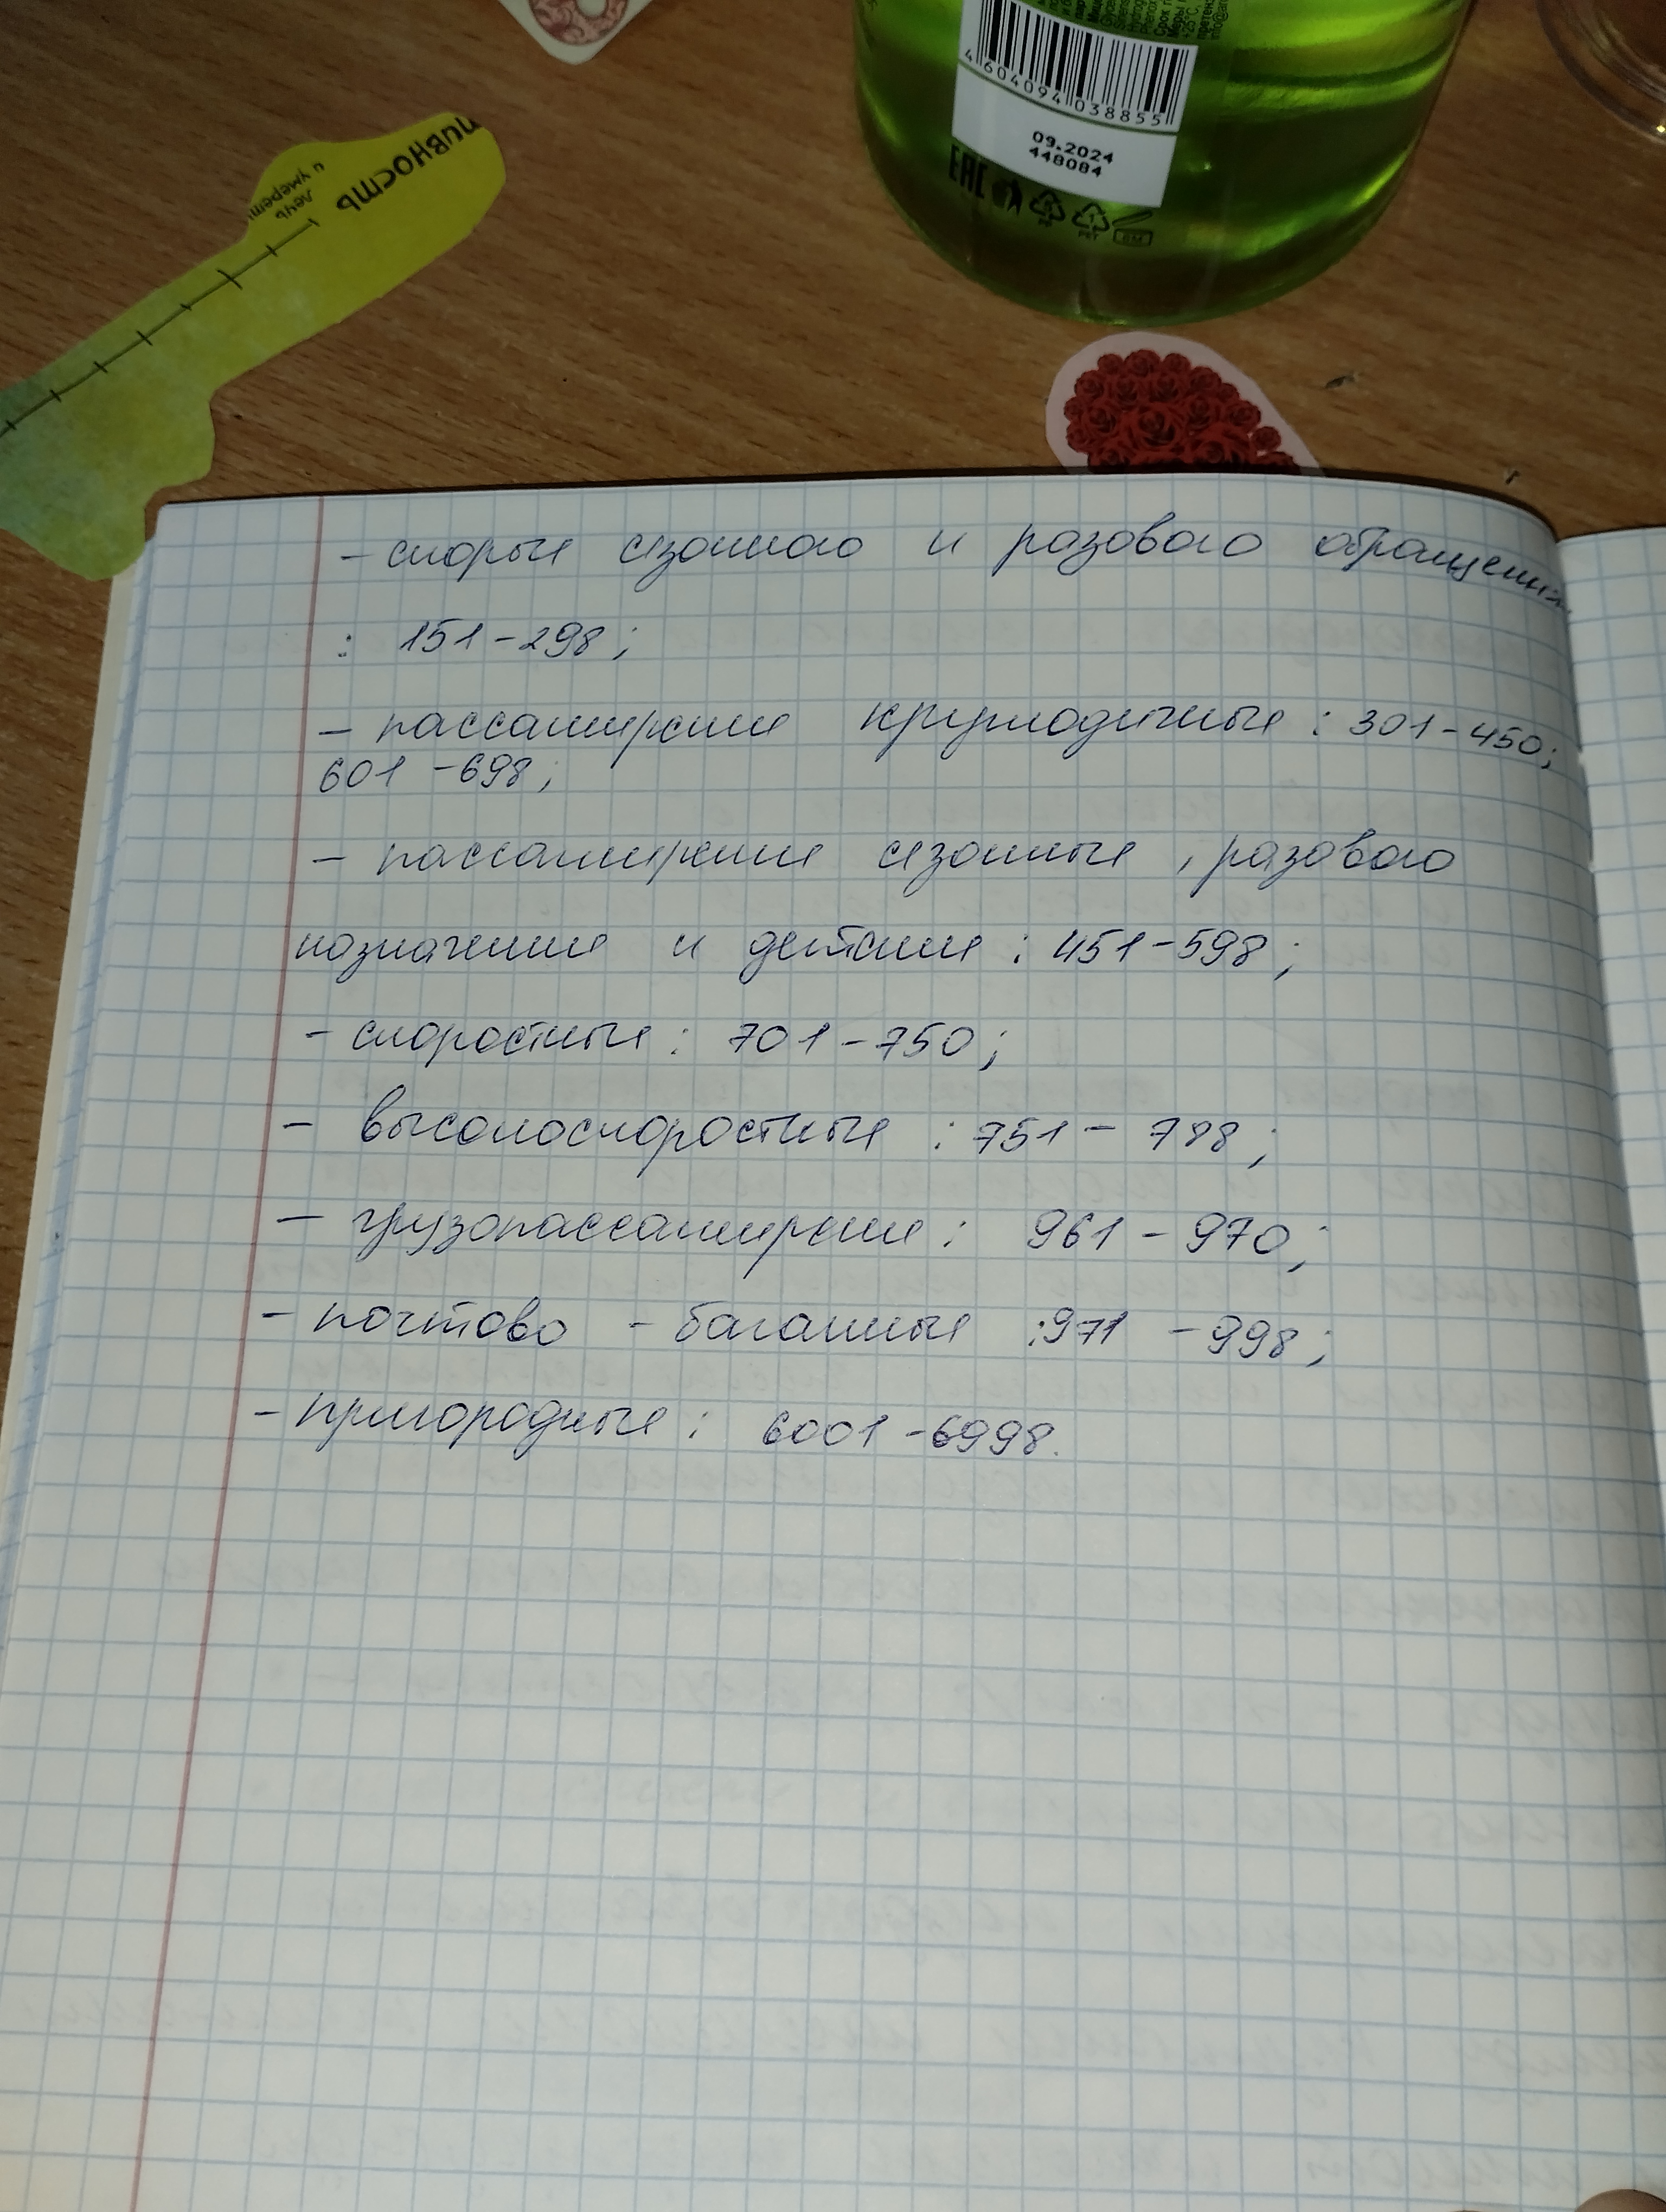 4 604094 038855
09.2024
448084
EAC
PET
12M
ивность
лечь
и умереть
- скорые сезонного и разового обращения
: 151-298;
- пассажирские круглогодичные : 301-450;
601 -698;
- пассажирские сезонные , разового
назначения и детские : 451-598;
- скоростные : 701-750;
- высокоскоростные : 751 - 788;
- грузопассажирские : 961 - 970;
- почтово - багажные :971 -998;
- пригородные : 6001 -6998.